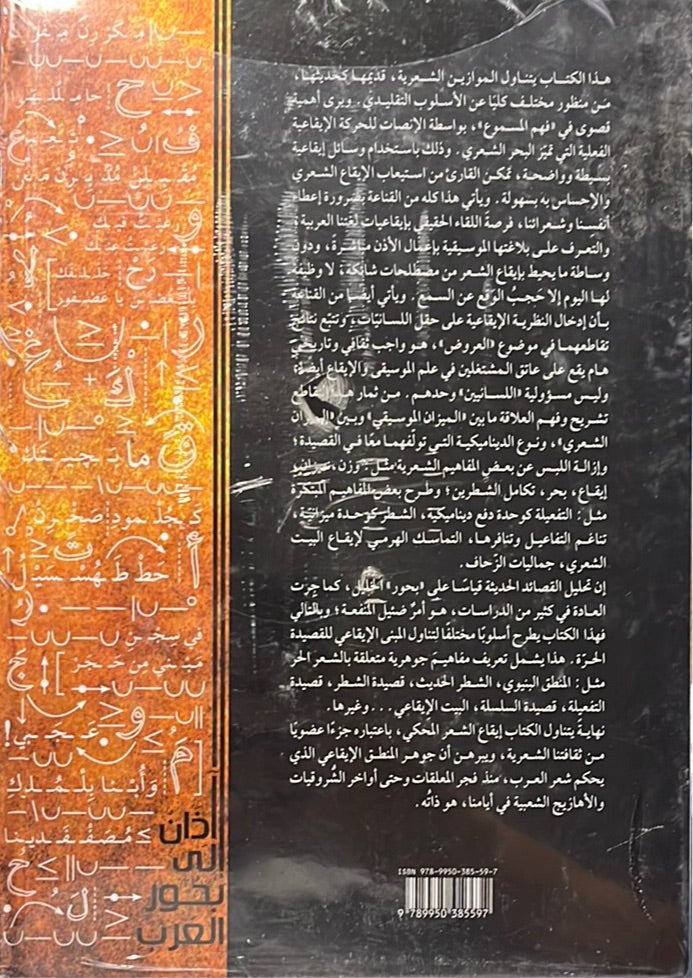 هذا الكتاب يتناول الموازين الشعرية، قديمها كحديثها،
من منظور مختلف كليًا عن الأسلوب التقليدي. ويرى أهمية
قصوى في «فهم المسموع»، بواسطة الإنصات للحركة الإيقاعية
الفعلية التي تميّز البحر الشعري. وذلك باستخدام وسائل إيقاعية
بسيطة وواضحة، تمكن القارئ من استيعاب الإيقاع الشعري
والإحساس به بسهولة. ويأتي هذا كله من القناعة بضرورة إعطاء
أنفسنا وشعرائنا، فرصة اللقاء الحقيقي بإيقاعيات لغتنا العربية؛
والتعرف على بلاغتها الموسيقية بإعمال الأذن مباشرة، ودون
وساطة ما يحيط بإيقاع الشعر من مصطلحات شائكة، لا وظيفة
لها اليوم إلا حجب الوقع عن السمع. ويأتي أيضًا من القناعة
بأن إدخال النظرية الإيقاعية على حقل اللسانيّات، وتتبّع نتائج
تقاطعهما في موضوع «العروض»، هو واجب ثقافي وتاريخي
هام يقع على عاتق المشتغلين في علم الموسيقى والإيقاع أيضًا،
وليس مسؤولية «اللسانيين» وحدهم. من ثمار هذا التقاطع
تشريح وفهم العلاقة ما بين «الميزان الموسيقي» وبين «الميزان
الشعري»، ونوع الديناميكية التي تولفهما معًا في القصيدة؛
وإزالة اللبس عن بعض المفاهيم الشعرية مثل: وزن، ميزان،
إيقاع، بحر، تكامل الشطرين؛ وطرح بعض المفاهيم المبتكرة
مثل: التفعيلة كوحدة دفع ديناميكية، الشطر كوحدة ميزانية،
تناغم التفاعيل وتنافرها، التماسك الهرمي لإيقاع البيت
الشعري، جماليات الزّحاف.
إن تحليل القصائد الحديثة قياسًا على «بحور» الخليل، كما جرت
العادة في كثير من الدراسات، هو أمرٌ ضئيل المنفعة؛ وبالتالي
فهذا الكتاب يطرح أسلوبًا مختلفًا لتناول المبنى الإيقاعي للقصيدة
الحرّة. هذا يشمل تعريف مفاهيم جوهرية متعلقة بالشعر الحر
مثل: المنطق البنيوي، الشطر الحديث، قصيدة الشطر، قصيدة
التفعيلة، قصيدة السلسلة، البيت الإيقاعي... وغيرها.
نهايةً يتناول الكتاب إيقاع الشعر المحكي، باعتباره جزءًا عضويًا
من ثقافتنا الشعرية، ويبرهن أن جوهر المنطق الإيقاعي الذي
يحكم شعر العرب، منذ فجر المعلقات وحتى أواخر الشروقيات
والأهازيج الشعبية في أيامنا، هو ذاتُه.
آذان
إلى
بحور
العرب
ISBN 978-9950-385-59-7
9 789950 385597